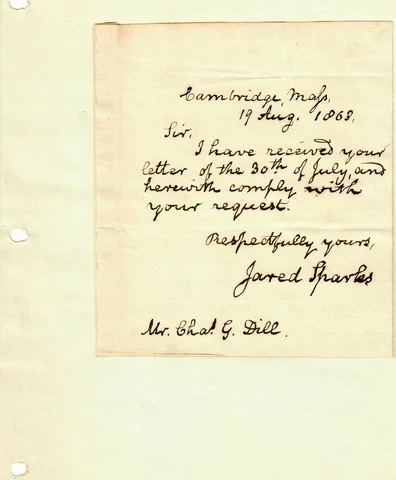 Cambridge, Mass,
19 Aug. 1863,
Sir,
I have received your
letter of the 30th of July, and
herewith comply with
your request.
Respectfully yours,
Jared Sparks
Mr. Chas. G. Dill.